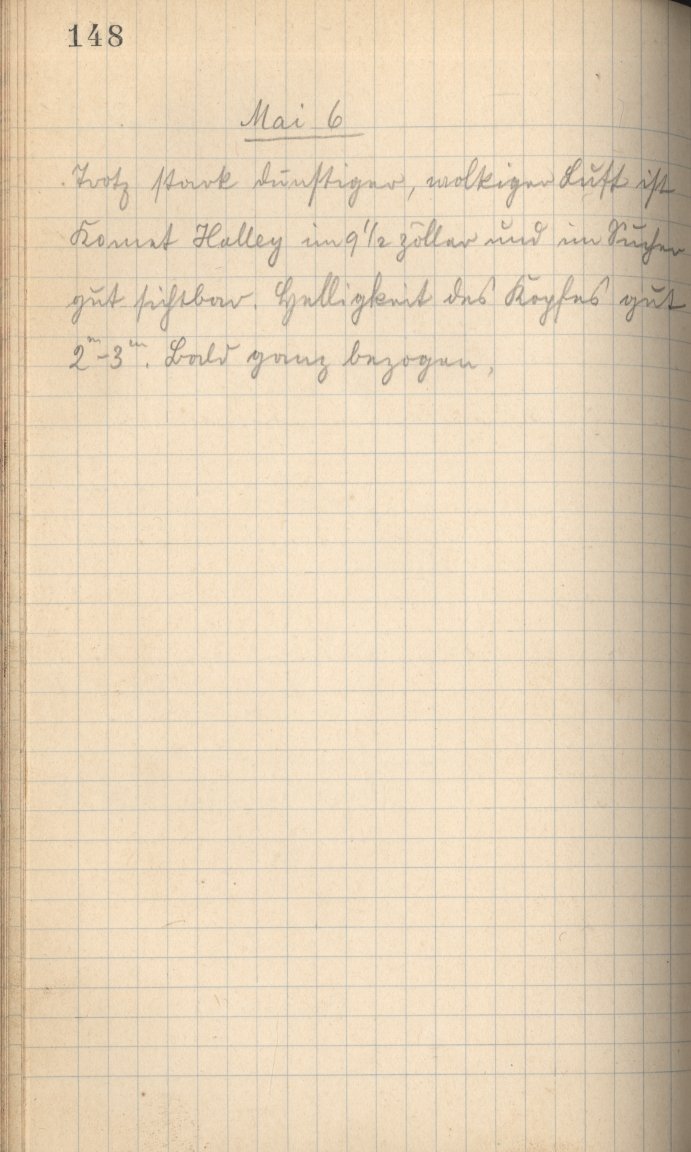 148
Mai 6
Trotz stark dunstiger, wolkiger Luft ist
Komet Halley im 9 1/2 zöller und im Sucher
gut sichtbar. Helligkeit des Kopfes gut
2ᵐ-3ᵐ. Bald ganz bezogen,